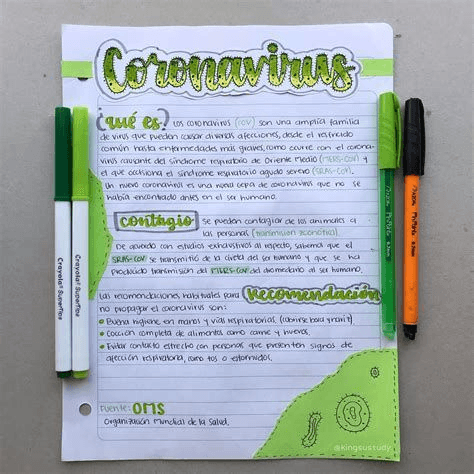 Coronavirus
¿qué es? Los coronavirus (COV) son una amplia familia
de virus que pueden causar diversas afecciones, desde el resfriado
común hasta enfermedades más graves, como ocurre con el corona-
virus causante del síndrome respiratorio de Oriente Medio (MERS-COV) y
el que ocasiona el síndrome respiratorio agudo severo (SRAS-COV).
Un nuevo coronavirus es una nueva cepa de coronavirus que no se
había encontrado antes en el ser humano.
contagio se pueden contagiar de los animales a
las personas (transmisión zoonótica).
De acuerdo con estudios exhaustivos al respecto, sabemos que el
SRAS-COV se transmitió de la civeta al ser humano y que se ha
producido transmisión del MERS-COV del dromedario al ser humano.
recomendación
Las recomendaciones habituales para
no propagar el coronavirus son:
Buena higiene, en manos y vías respiratorias. (cubrirse boca y nariz).
Cocción completa de alimentos como carne y huevos.
Evitar contacto estrecho con personas que presenten signos de
afección respiratoria, como tos o estornudos.
Fuente: OMS
Organización Mundial de la Salud.
@kingsustudy
Crayola® SuperTips
Crayola® SuperTips